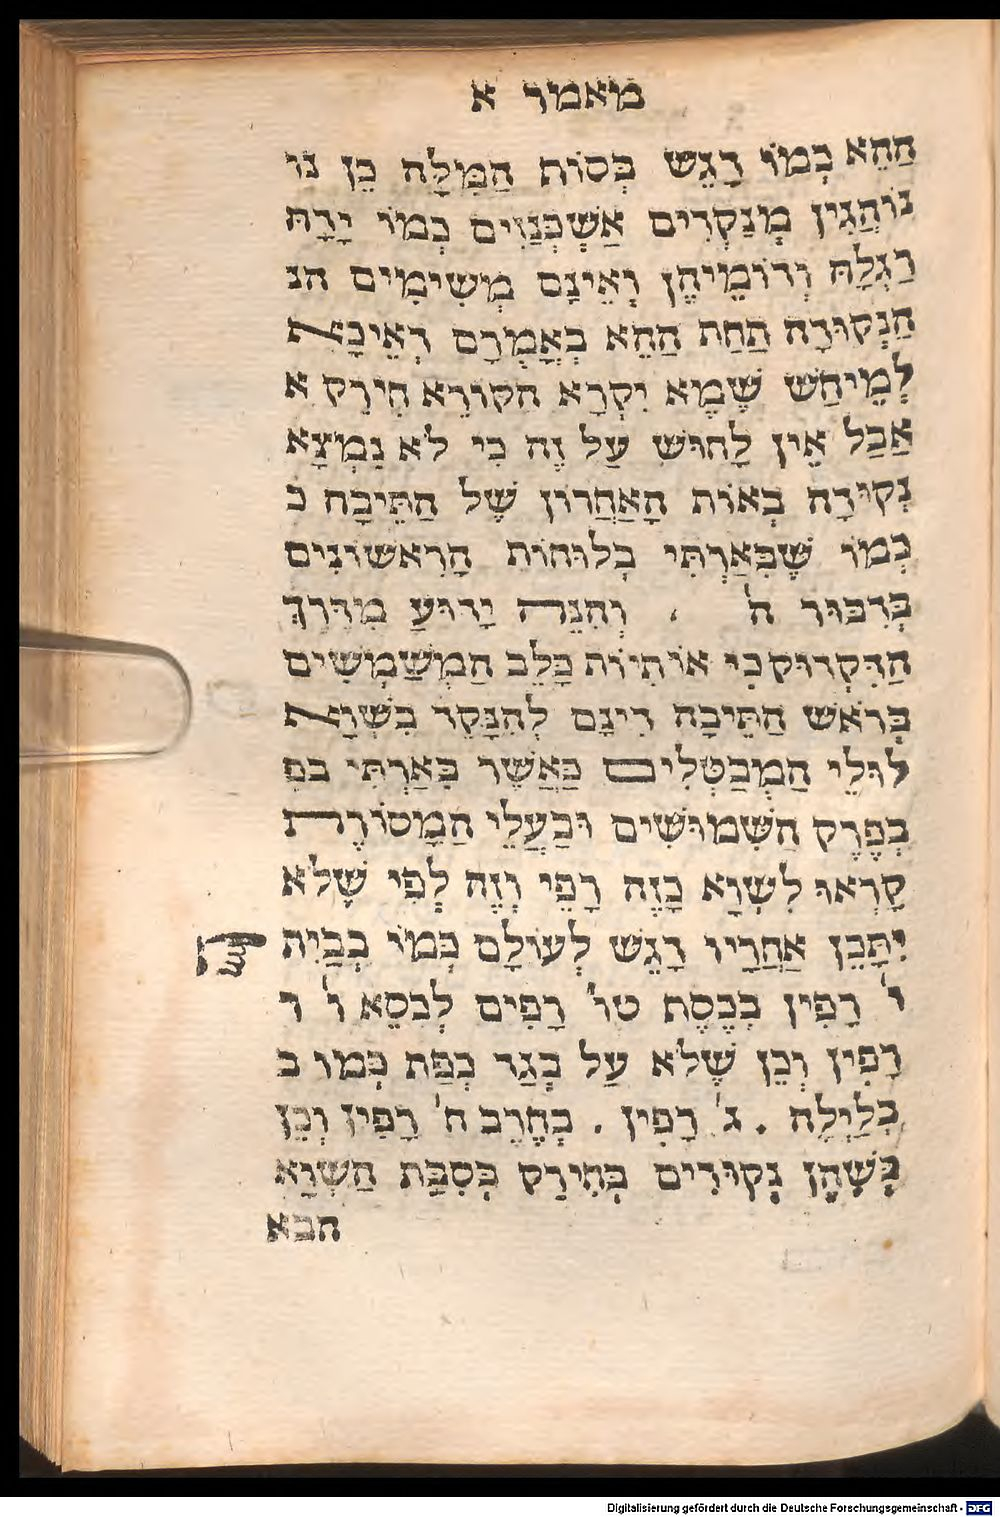 מאמר א
הַהֵא כְּמוֹ דָגֵשׁ בְּסוֹת הַמִּלָּה כֵּן נו
נוֹהֲגִין מְנַקְּדִים אַשְׁכְּנַזִים כְּמוֹ יָדָהּ
רַגְלָהּ וְדוֹמֵיהֶן וְאֵינָם מְשִׂימִים הנ
הַנְּקוּדָה תַּחַת הַהֵא בְּאָמְרָם דְּאִיכָּא
לְמֵיחַשׁ שֶׁמָא יִקְרָא הַקּוֹרֵא חִירִק א
אֲבָל אֵין לָחוּשׁ עַל זֶה כִּי לֹא נִמְצָא
נְקוּדָה בְּאוֹת הָאַחֲרוֹן שֶׁל הַתֵּיבָה כ
כְּמוֹ שֶׁבֵּאַרְתִּי בְּלוּחוֹת הָרִאשׁוֹנִים
בְּדִבּוּר ה' . וְהִנֵּה יָדוּעַ מִדֶּרֶךְ
הַדִּקְדּוּק כִּי אוֹתִיוֹת כָּלֵב הַמְשַׁמְּשִׁים
בְּרֹאשׁ הַתֵּיבָה דִינָם לְהִנָּקֵד בִּשְׁוָא
לוּלֵי הַמְבַטְּלִים כַּאֲשֶׁר בֵּאַרְתִּי בפ
בְּפֶרֶק הַשִּׁמּוּשִׁים וּבַעֲלֵי הַמָּסוֹרֶת
קָרְאוּ לִשְׁוָא כָּזֶה רָפֵי וְזֶה לְפִי שֶׁלֹּא
יִתָּכֵן אַחֲרָיו דָגֵשׁ לְעוֹלָם כְּמוֹ בְּבַיִת
ו' רָפִין בְּכֶסֶת טו' רָפִים לְכִסֵּא ו' ר
רָפִין וְכֵן שֶׁלֹּא עַל בֶּגֶד כֶּפֶת כְּמוֹ ב
בְּלַיְלָה . ג' רָפִין . בְּחֶרֶב ח' רָפִין וְכֵן
כְּשֶׁהֵן נְקוּדִים בְּחִירַק בְּסִבַּת הַשְּׁוָא
הבא
Digitalisierung gefördert durch die Deutsche Forschungsgemeinschaft - DFG